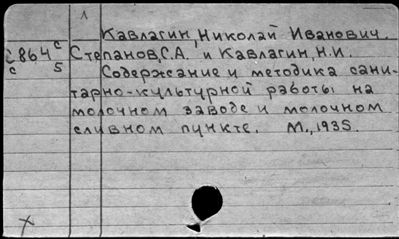 1
Кавлагин, Николай Иванович.
Степанов, С.А. и Кавлагин, Н.И.
864 с
с 5
Содержание и методика сани-
тарно-культурной работы на
молочном заводе и молочном
сливном пункте. М., 1935.
х